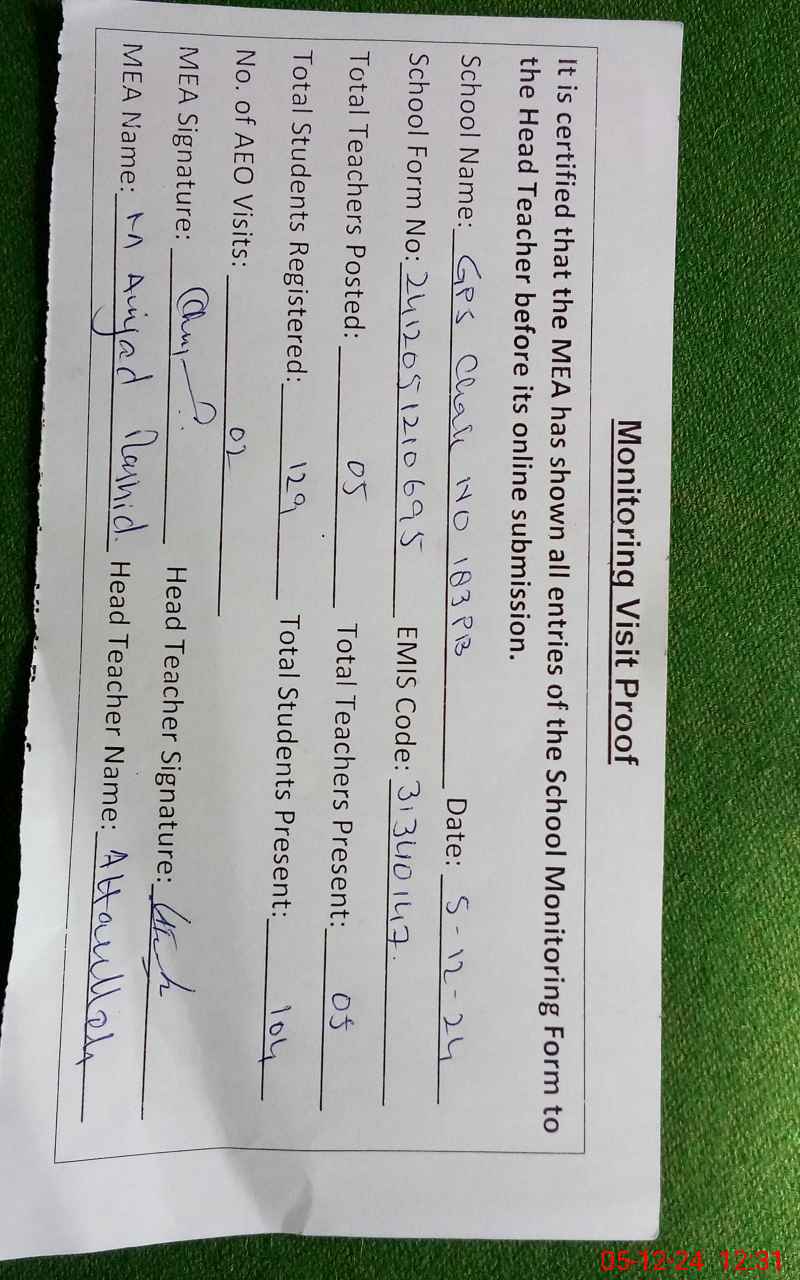 Monitoring Visit Proof
It is certified that the MEA has shown all entries of the School Monitoring Form to
the Head Teacher before its online submission.
School Name: GPS Chak NO 183PB Date: 5-12-24
School Form No: 241205121 0695 EMIS Code: 31340147.
Total Teachers Posted: 05 Total Teachers Present: 05
Total Students Registered: 129 Total Students Present: 104
No. of AEO Visits: 02
MEA Signature: Head Teacher Signature:
MEA Name: M Amjad Rashid. Head Teacher Name: Attaullah
05-12-24 12:31